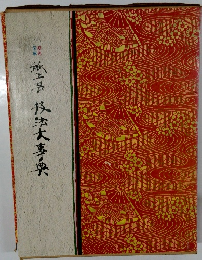 紙工芸 技法大事典